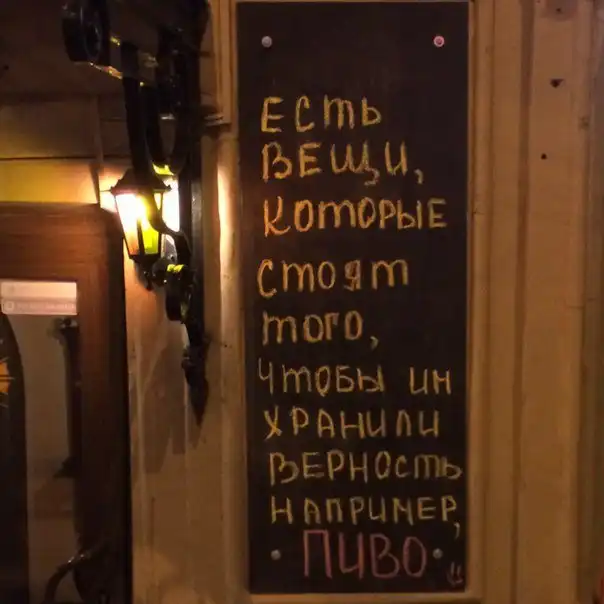 ЕСТЬ
ВЕЩИ,
КОТОРЫЕ
СТОЯТ
ТОГО,
ЧТОБЫ ИМ
ХРАНИЛИ
ВЕРНОСТЬ
НАПРИМЕР,
ПИВО